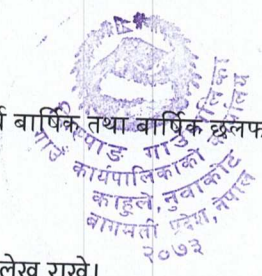 बार्षिक तथा बार्षिक छलफ
गाउँ कार्यपालिकाको
काहुले, नुवाकोट
बागमती प्रदेश, नेपाल
२०७३
लेख राखे।